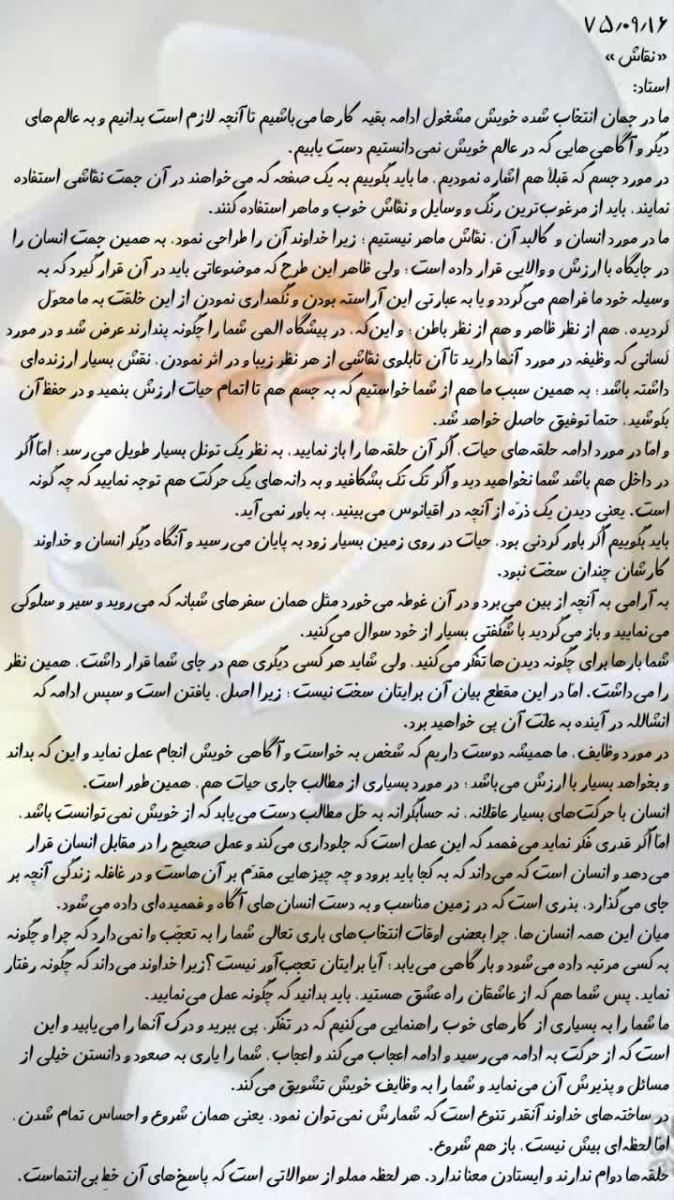 ۷۵/۰۹/۱۶
«نقاش»
استاد:
ما در جهان انتخاب شده خویش مشغول ادامه بقیه کارها می‌باشیم تا آنچه لازم است بدانیم و به عالم‌های
دیگر و آگاهی‌هایی که در عالم خویش نمی‌دانستیم دست یابیم.
در مورد جسم که قبلاً هم اشاره نمودیم. ما باید بگوییم به یک صفحه که می‌خواهند در آن جهت نقاشی استفاده
نمایند. باید از مرغوب‌ترین رنگ و وسایل و نقاش خوب و ماهر استفاده کنند.
ما در مورد انسان و کالبد آن. نقاش ماهر نیستیم؛ زیرا خداوند آن را طراحی نمود. به همین جهت انسان را
در جایگاه با ارزش و والایی قرار داده است؛ ولی ظاهر این طرح که موضوعاتی باید در آن قرار گیرد که به
وسیله خود ما فراهم می‌گردد و یا به عبارتی این آراسته بودن و نگهداری نمودن از این خلقت به ما محول
گردیده. هم از نظر ظاهر و هم از نظر باطن؛ و این‌که. در پیشگاه الهی شما را چگونه پندارند عرض شد و در مورد
کسانی که وظیفه در مورد آنها دارید تا آن تابلوی نقاشی از هر نظر زیبا و در اثر نمودن. نقش بسیار ارزنده‌ای
داشته باشد؛ به همین سبب ما هم از شما خواستیم که به جسم هم تا اتمام حیات ارزش بنهید و در حفظ آن
بکوشید. حتما توفیق حاصل خواهد شد.
و اما در مورد ادامه حلقه‌های حیات. اگر آن حلقه‌ها را باز نمایید. به نظر یک تونل بسیار طویل می‌رسد؛ اما اگر
در داخل هم باشد شما نخواهید دید و اگر تک تک بشکافید و به دانه‌های یک حرکت هم توجه نمایید که چه گونه
است. یعنی دیدن یک ذره از آنچه در اقیانوس می‌بینید. به باور نمی‌آید.
باید بگوییم اگر باور کردنی بود. حیات در روی زمین بسیار زود به پایان می‌رسید و آنگاه دیگر انسان و خداوند
کارشان چندان سخت نبود.
به آرامی به آنچه از بین می‌برد و در آن غوطه می‌خورد مثل همان سفرهای شبانه که می‌روید و سیر و سلوکی
می‌نمایید و باز می‌گردید با شگفتی بسیار از خود سوال می‌کنید.
شما بارها برای چگونه دیدن‌ها تفکر می‌کنید. ولی شاید هر کسی دیگری هم در جای شما قرار داشت. همین نظر
را می‌داشت. اما در این مقطع بیان آن برایتان سخت نیست؛ زیرا اصل. یافتن است و سپس ادامه که
انشالله در آینده به علت آن پی خواهید برد.
در مورد وظایف. ما همیشه دوست داریم که شخص به خواست و آگاهی خویش انجام عمل نماید و این که بداند
و بخواهد بسیار با ارزش می‌باشد؛ در مورد بسیاری از مطالب جاری حیات هم. همین‌طور است.
انسان با حرکت‌های بسیار عاقلانه. نه حسابگرانه به حل مطالب دست می‌یابد که از خویش نمی‌توانست باشد.
اما اگر قدری فکر نماید می‌فهمد که این عمل است که جلوداری می‌کند و عمل صحیح را در مقابل انسان قرار
می‌دهد و انسان است که می‌داند که به کجا باید برود و چه چیزهایی مقدم بر آن‌هاست و در غافله زندگی آنچه بر
جای می‌گذارد. بذری است که در زمین مناسب و به دست انسان‌های آگاه و فهمیده‌ای داده می‌شود.
میان این همه انسان‌ها. چرا بعضی اوقات انتخاب‌های باری تعالی شما را به تعجب وا نمی‌دارد که چرا و چگونه
به کسی مرتبه داده می‌شود و بارگاهی می‌یابد؛ آیا برایتان تعجب‌آور نیست؟زیرا خداوند می‌داند که چگونه رفتار
نماید. پس شما هم که از عاشقان راه عشق هستید. باید بدانید که چگونه عمل می‌نمایید.
ما شما را به بسیاری از کارهای خوب راهنمایی می‌کنیم که در تفکر. پی ببرید و درک آنها را می‌یابید و این
است که از حرکت به ادامه می‌رسید و ادامه اعجاب می‌کند و اعجاب. شما را یاری به صعود و دانستن خیلی از
مسائل و پذیرش آن می‌نماید و شما را به وظایف خویش تشویق می‌کند.
در ساخته‌های خداوند آنقدر تنوع است که شمارش نمی‌توان نمود. یعنی همان شروع و احساس تمام شدن.
اما لحظه‌ای بیش نیست. باز هم شروع.
حلقه‌ها دوام ندارند و ایستادن معنا ندارد. هر لحظه مملو از سوالاتی است که پاسخ‌های آن خط بی انتهاست.